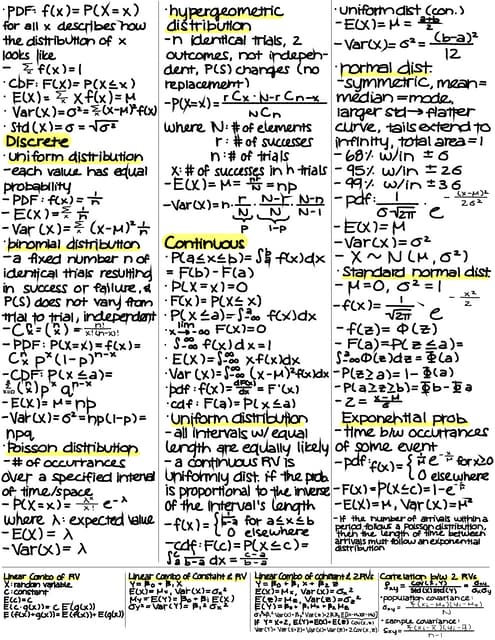 · PDF: f(x) = P(X = x)
for all x describes how
the distribution of x
looks like
- Σ f(x) = 1
· CDF: F(x) = P(X ≤ x)
· E(X) = Σ x f(x) = μ
· Var(x) = σ² = Σ(x-μ)² f(x)
· Std(x) = σ = √σ²
Discrete
· uniform distribution
- each value has equal
probability
- PDF: f(x) = 1/n
- E(X) = Σ 1/n
- Var(x) = Σ (x-μ)² 1/n
· binomial distribution
- a fixed number n of
identical trials resulting
in success or failure, &
P(S) does not vary from
trial to trial, independent
- PDF: P(X=x) = f(x) =
Cⁿₓ pˣ (1-p)ⁿ⁻ˣ
- CDF: P(X ≤ a) =
- E(X) = μ = np
- Var(x) = σ² = np(1-p) =
npq
· Poisson distribution
- # of occurrances
over a specified interval
of time/space
- P(X = x) = λˣ/x! e^-λ
where λ: expected value
- E(X) = λ
- Var(x) = λ
· hypergeometric
distribution
- n identical trials, 2
outcomes, not indepen-
dent, P(S) changes (no
replacement)
- P(X=x) = rCx · N-rCn-x / NCn
where N: # of elements
r: # of successes
n: # of trials
x: # of successes in n trials
- E(X) = μ = nr/N = np
- Var(x) = n · r/N · N-r/N · N-n/N-1
p 1-p
Continuous
· P(a ≤ x ≤ b) = ∫ᵇₐ f(x)dx
= F(b) - F(a)
· P(X = x) = 0
· F(x) = P(X ≤ x)
· P(X ≤ a) = ∫ᵃ₋∞ f(x)dx
· lim x→-∞ F(x) = 0
· ∫^∞₋∞ f(x)dx = 1
· E(X) = ∫^∞₋∞ x f(x)dx
· Var(x) = ∫^∞₋∞ (x-μ)² f(x)dx
· pdf: f(x) = dF(x)/dx = F'(x)
· cdf: F(a) = P(X ≤ a)
· uniform distribution
- all intervals w/ equal
length are equally likely
- a continuous RV is
uniformly dist. if the prob.
is proportional to the inverse
of the interval's length
- f(x) = { 1/b-a for a ≤ x ≤ b
0 elsewhere
- cdf: F(c) = P(X ≤ c) =
∫ᶜₐ 1/b-a dx = c-a/b-a
· uniform dist (con.)
- E(X) = μ = a+b/2
- Var(x) = σ² = (b-a)²/12
· normal dist.
- symmetric, mean =
median = mode,
larger std → flatter
curve, tails extend to
infinity, total area = 1
- 68% w/in ± σ
- 95% w/in ± 2σ
- 99% w/in ± 3σ
- pdf: 1/σ√2π · e^-(x-μ)²/2σ²
- E(X) = μ
- Var(x) = σ²
- X ~ N(μ, σ²)
· Standard normal dist
- μ = 0, σ² = 1
- f(x) = 1/√2π · e^-x²/2
- f(z) = Φ(z)
- F(a) = P(z ≤ a) =
∫ᵃ₋∞ Φ(z)dz = Φ(a)
- P(z ≥ a) = 1 - Φ(a)
- P(a ≥ z ≥ b) = Φb - Φa
- z = x-μ/σ
Exponential prob.
- time b/w occurrances
of some event
0 elsewhere
- E(X) = μ, Var(x) = μ²
- If the number of arrivals within a
period follows a Poisson distribution,
then the length of time between
arrivals must follow an exponential
distribution
Linear Combo of RV
X: random variable
C: constant
E(c) = c
E(c·g(x)) = c E(g(x))
E(f(x)+g(x)) = E(f(x)) + E(g(x))
Linear Combo of Constant & RV
Y = β₀ + β₁ X
E(X) = μx, Var(x) = σx²
E(Y) = μy = β₀ + β₁ E(X)
σy² = Var(Y) = β₁² σx²
Linear combo of constant & 2RVs
Correlation b/w 2 RVs
· population covariance:
· sample covariance: